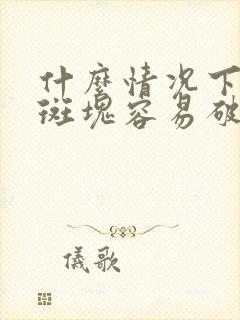 什麼情况下
斑塊容易破
儀歌